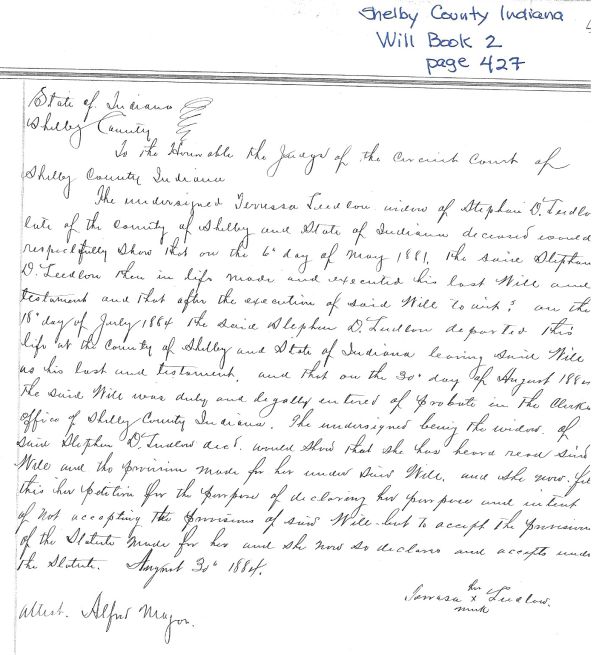 Shelby County Indiana
Will Book 2
page 427
State of Indiana
Shelby County
To the Honorable the Judge of the Circuit Court of
Shelby County Indiana
The undersigned Terressa Luedlow widow of Stephen D. Ludlo
late of the County of Shelby and State of Indiana deceased would
respectfully show that on the 6th day of May 1881, the said Stephen
D. Leedlow then in life made and executed his last Will and
testament and that after the execution of said Will to wit: on the
18th day of July 1884 the said Stephen D. Ludlow departed this
life at the County of Shelby and State of Indiana leaving said Will
as his last and testament, and that on the 30th day of August 188
the said Will was duly and legally entered of probate in the Clerks
office of Shelby County Indiana. The undersigned being the widow of
said Stephen D. Ludlow decd. would show that she has heard read said
Will and the provision made for her under said Will, and she now
this her petition for the purpose of declaring her purpose and intent
of not accepting the provisions of said Will but to accept the provision
of the Statute made for her and she now so declares and accepts unde
the Statute. August 30th 1884.
her
Terressa x Ludlow.
mark
attest. Alfred Major.